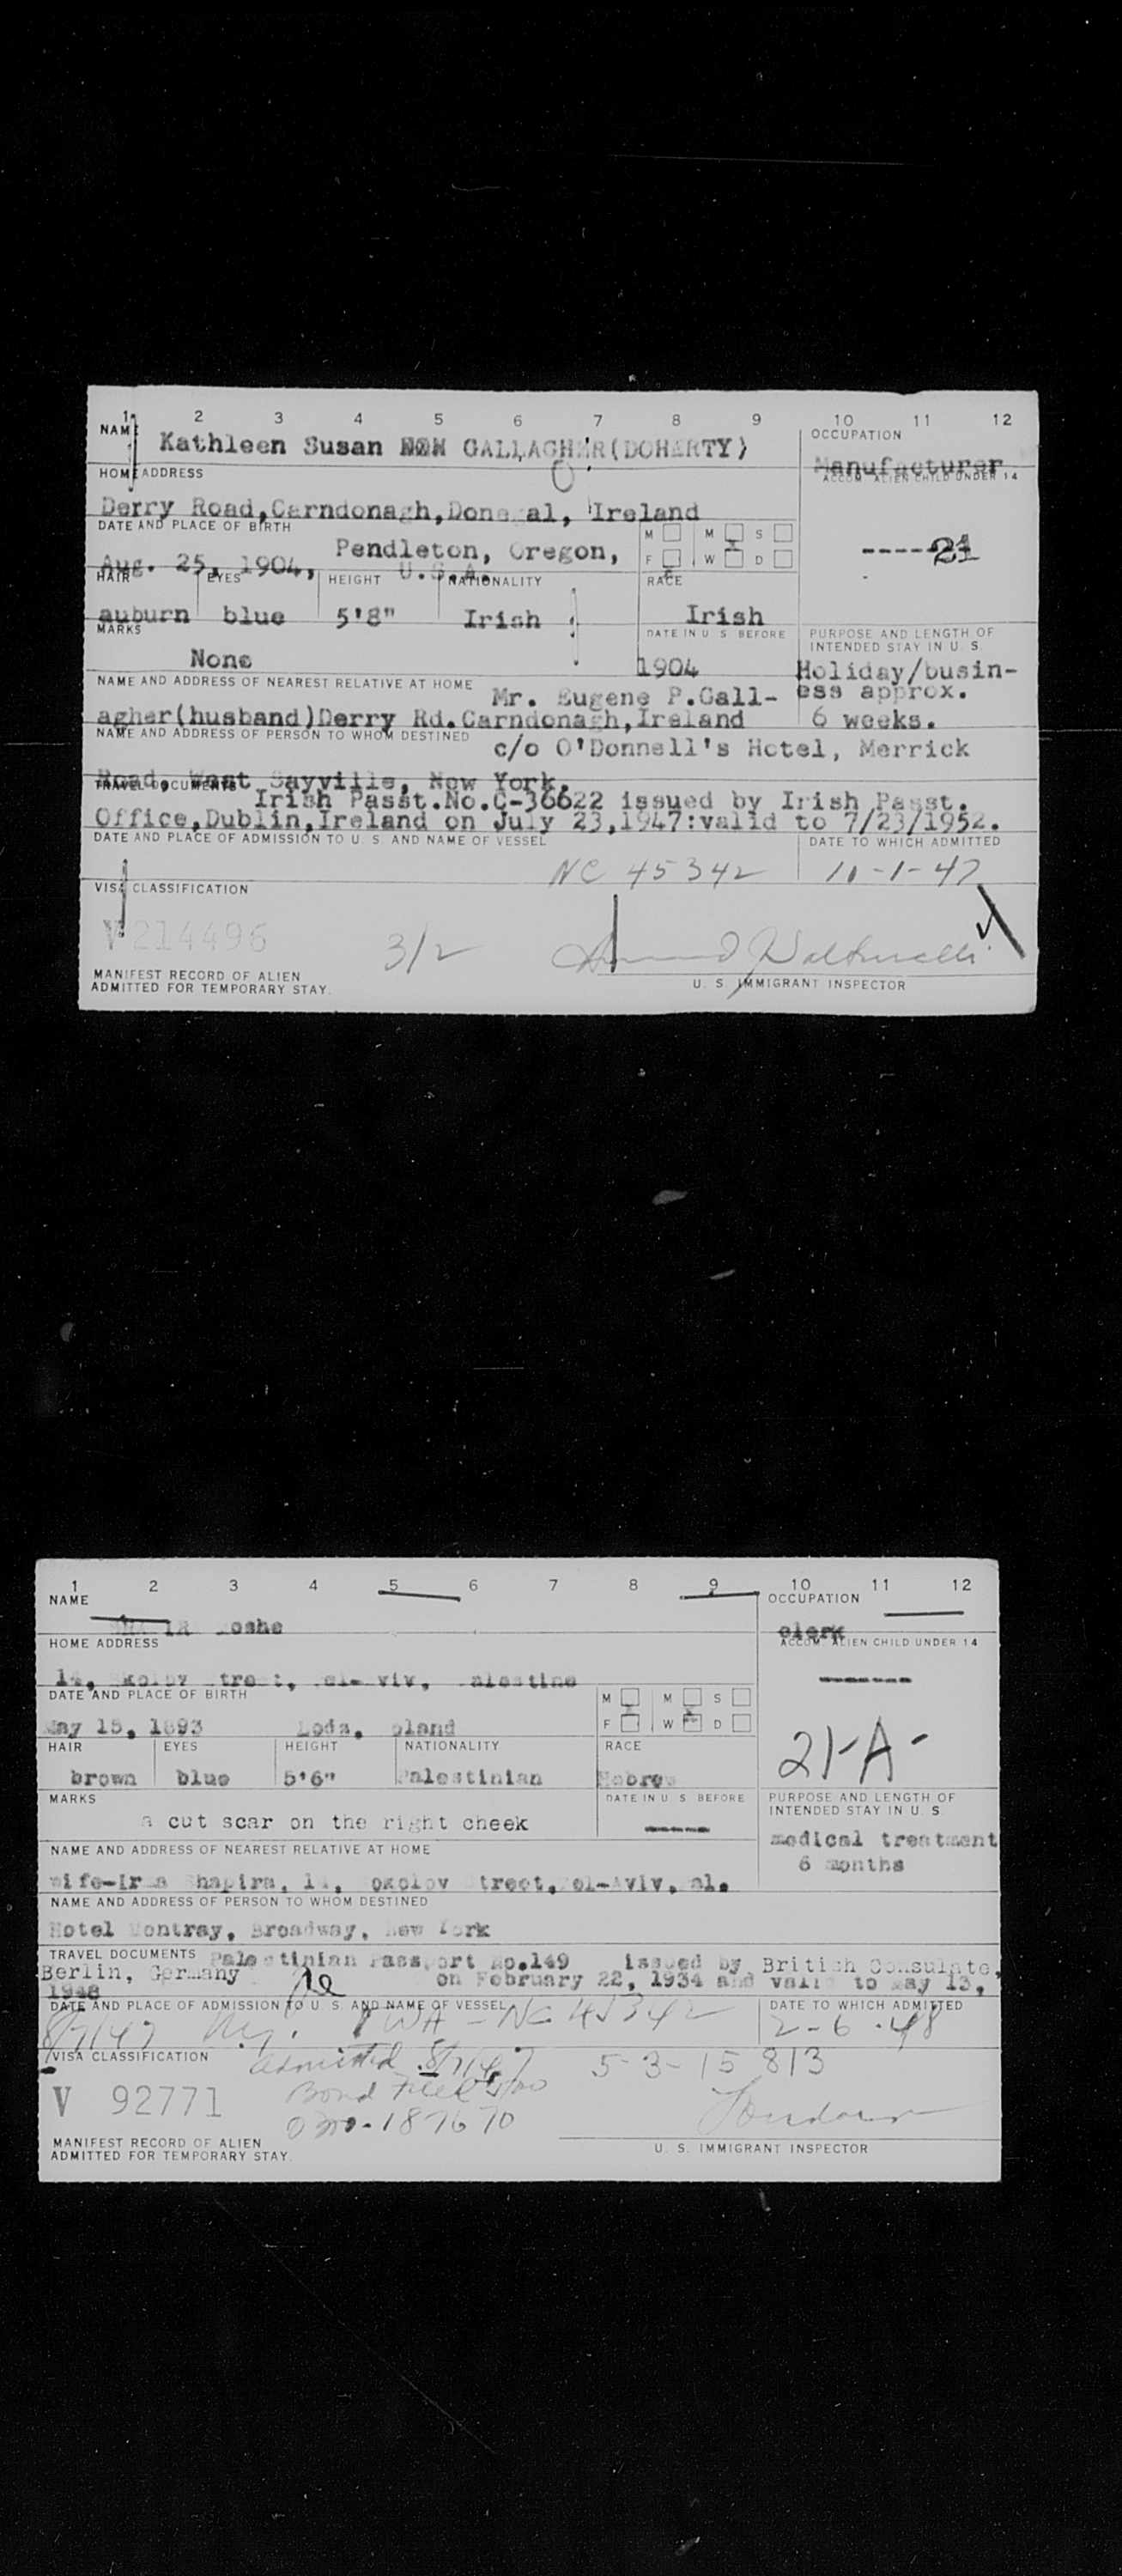 1 2 3 4 5 6 7 8 9 10 11 12
NAME
OCCUPATION
Kathleen Susan GALLAGHER(DOHERTY)
Manufacturer
HOME ADDRESS
ACCOM. ALIEN CHILD UNDER 14
Derry Road,Carndonagh,Donegal, Ireland
DATE AND PLACE OF BIRTH
M M S
F W D
-----21
Aug. 25, 1904, Pendleton, Oregon,
U.S.A.
HAIR EYES HEIGHT NATIONALITY RACE
auburn blue 5'8" Irish Irish
MARKS
DATE IN U S BEFORE
PURPOSE AND LENGTH OF
INTENDED STAY IN U. S.
None
1904
Holiday/busin-
ess approx.
6 weeks.
NAME AND ADDRESS OF NEAREST RELATIVE AT HOME
Mr. Eugene P.Gall-
agher(husband)Derry Rd.Carndonagh,Ireland
NAME AND ADDRESS OF PERSON TO WHOM DESTINED
c/o O'Donnell's Hotel, Merrick
Road, West Sayville, New York.
TRAVEL DOCUMENTS
Irish Passt.No.C-36622 issued by Irish Passt.
Office,Dublin,Ireland on July 23,1947:valid to 7/23/1952.
DATE AND PLACE OF ADMISSION TO U. S. AND NAME OF VESSEL
DATE TO WHICH ADMITTED
NC 45342
11-1-47
VISA CLASSIFICATION
V 214496
3/2
MANIFEST RECORD OF ALIEN
ADMITTED FOR TEMPORARY STAY.
U. S. IMMIGRANT INSPECTOR
1 2 3 4 5 6 7 8 9 10 11 12
NAME
OCCUPATION
clerk
HOME ADDRESS
ACCOM. ALIEN CHILD UNDER 14
DATE AND PLACE OF BIRTH
M M S
F W D
May 15, 1893 Lodz, Poland
21-A-
HAIR EYES HEIGHT NATIONALITY RACE
brown blue 5'6" Palestinian Hebrew
MARKS
DATE IN U S BEFORE
PURPOSE AND LENGTH OF
INTENDED STAY IN U. S
a cut scar on the right cheek
medical treatment
6 months
NAME AND ADDRESS OF NEAREST RELATIVE AT HOME
wife-Irma Shapira, 14, Sokolov Street, Tel-Aviv, Pal.
NAME AND ADDRESS OF PERSON TO WHOM DESTINED
Hotel Broadway, New York
TRAVEL DOCUMENTS Palestinian Passport No.149 issued by British Consulate,
Berlin, Germany on February 22, 1934 and valid to May 13,
1948
DATE AND PLACE OF ADMISSION TO U. S. AND NAME OF VESSEL
DATE TO WHICH ADMITTED
8/7/47 N.Y. TWA - NC 45342
2-6-48
VISA CLASSIFICATION
admitted 8/7/47
5-3-15813
V 92771
Bond Filed
187670
MANIFEST RECORD OF ALIEN
ADMITTED FOR TEMPORARY STAY.
U. S. IMMIGRANT INSPECTOR